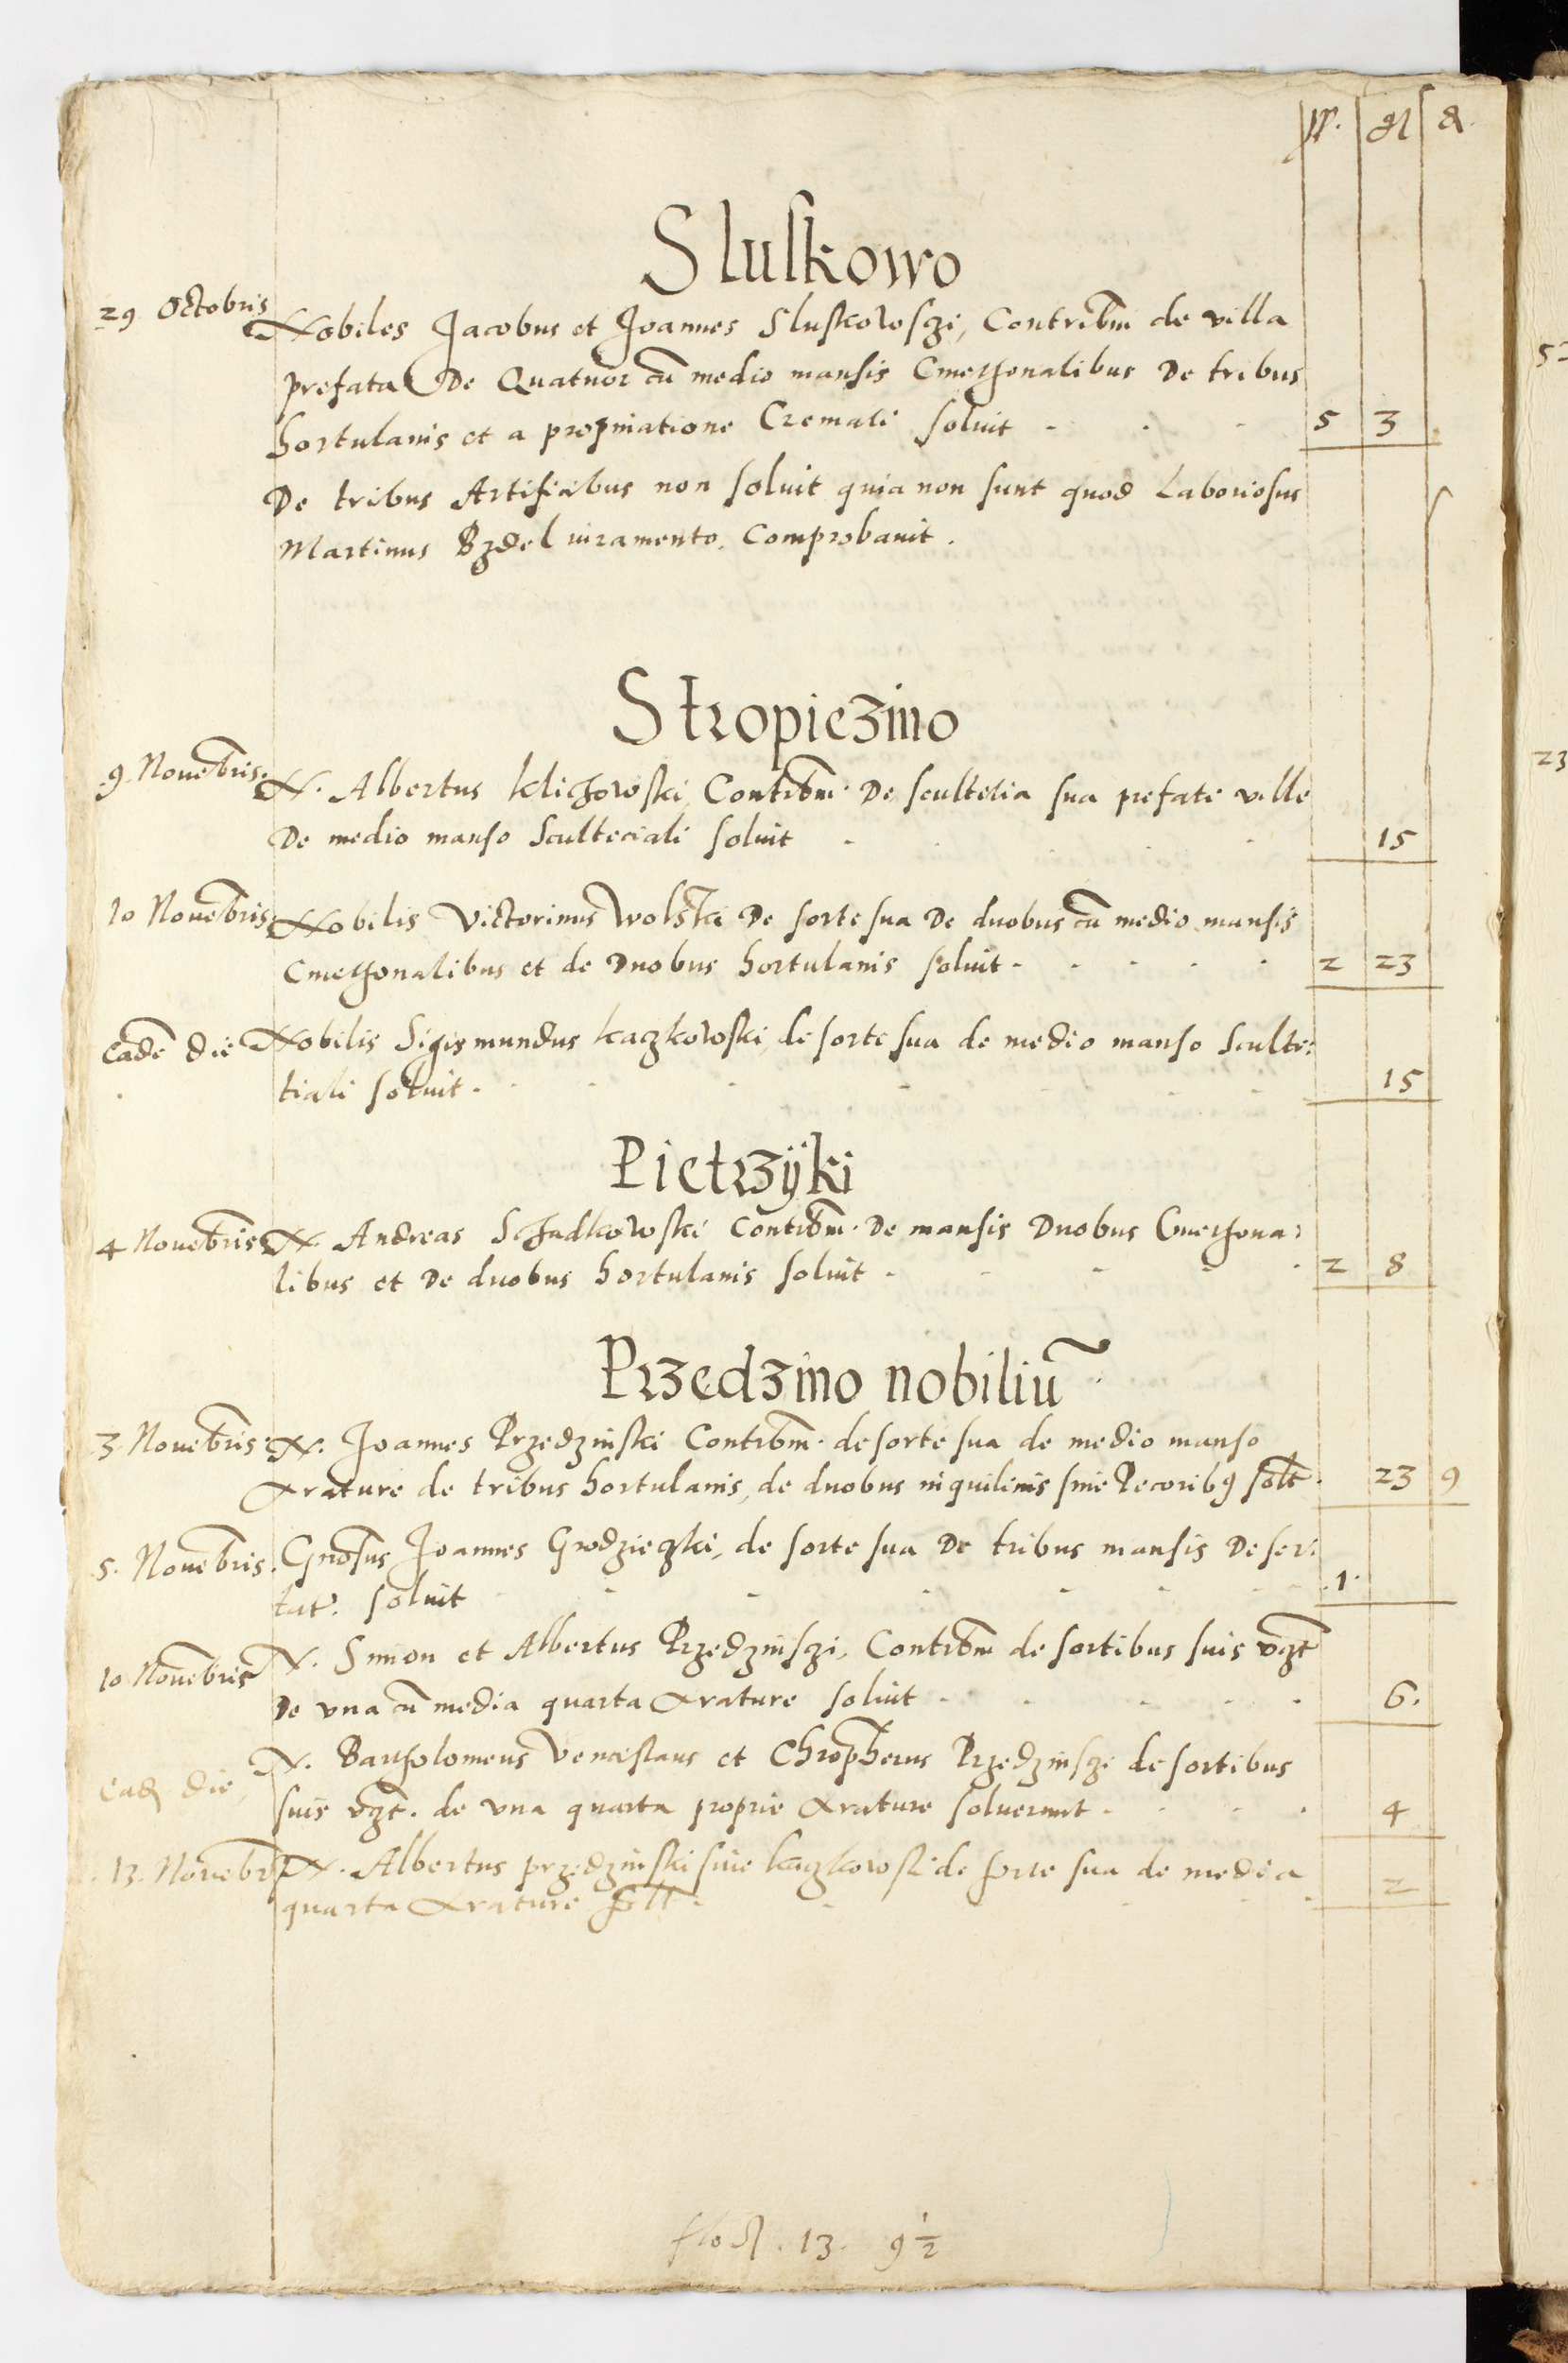 fl. gr ꝺ.
Sluskowo
29 Octobris Nobiles Jacobus et Joannes Sluskowsczi, Contribm de villa
prefata De Quatuor cū medio mansis Cmethonalibus De tribus
hortulanis et a propinatione Cremati soluit 5 3
De tribus Artificibus non soluit quia non sunt quod Laboriosus
Martinus Bzdel iuramento Comprobauit.
Stropieszino
9 Nouēbris. N. Albertus Klichowski Contribm. De scultetia sua prefate ville
De medio manso Sculteciali soluit 15
10 Nouēbris Nobilis Victorinus Wolski De sorte sua De duobus cū medio mansis
Cmethonalibus et de Duobus hortulanis soluit 2 23
Eadē die Nobilis Sigismundus Kaczkowski, de sorte sua de medio manso Sculte:
tiali soluit 15
Pietrzÿki
4 Nouēbris N. Andreas Schadkowski Contribm. De mansis Duobus Cmethona:
libus et De duobus hortulanis soluit 2 8
Przedzino nobiliū
3 Nouēbris. N. Joannes Przedzinski Contribm. de sorte sua de medio manso
Arature de tribus hortulanis, de duobus inquilinis sine Pecoribꝯ solt 23 9
5. Nouēbris. Gnosus Joannes Grodzieczki, de sorte sua De tribus mansis Deser:
tat. soluit .1.
10 Nouēbris N. Simon et Albertus Przedzinsczi, Contribm de sortibus suis vzt
De vna cū media quarta Arature soluit 6.
Eadꝫ die, N. Bartholomeus Vencislaus et Chropherus Przedzinsczi de sortibus
suis vzt. de vna quarta proprie Arature soluerunt 4
13. Nouebr N. Albertus przedzinski siue Kaczkowski de sorte sua de media
quarta Arature solt 2
13. 9 1/2